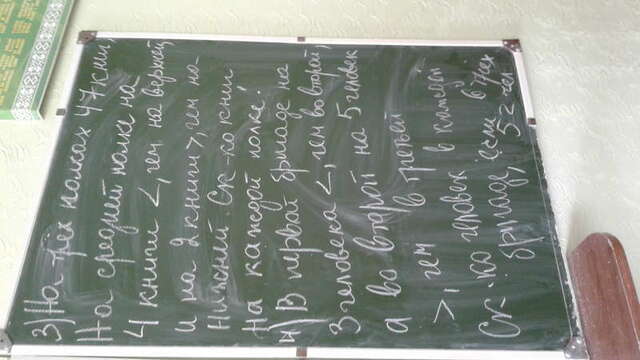 3) На трёх полках 47 книг,
На средней полке на
4 книги <, чем на верхней
и на 2 книги >, чем на
нижней. Ск-ко книг
на каждой полке?
4) В первой бригаде на
3 человека <, чем во второй,
а во второй на 5 человек
>, чем в третьей
Ск-ко человек в каждой
бригаде, если в трёх
52 чел